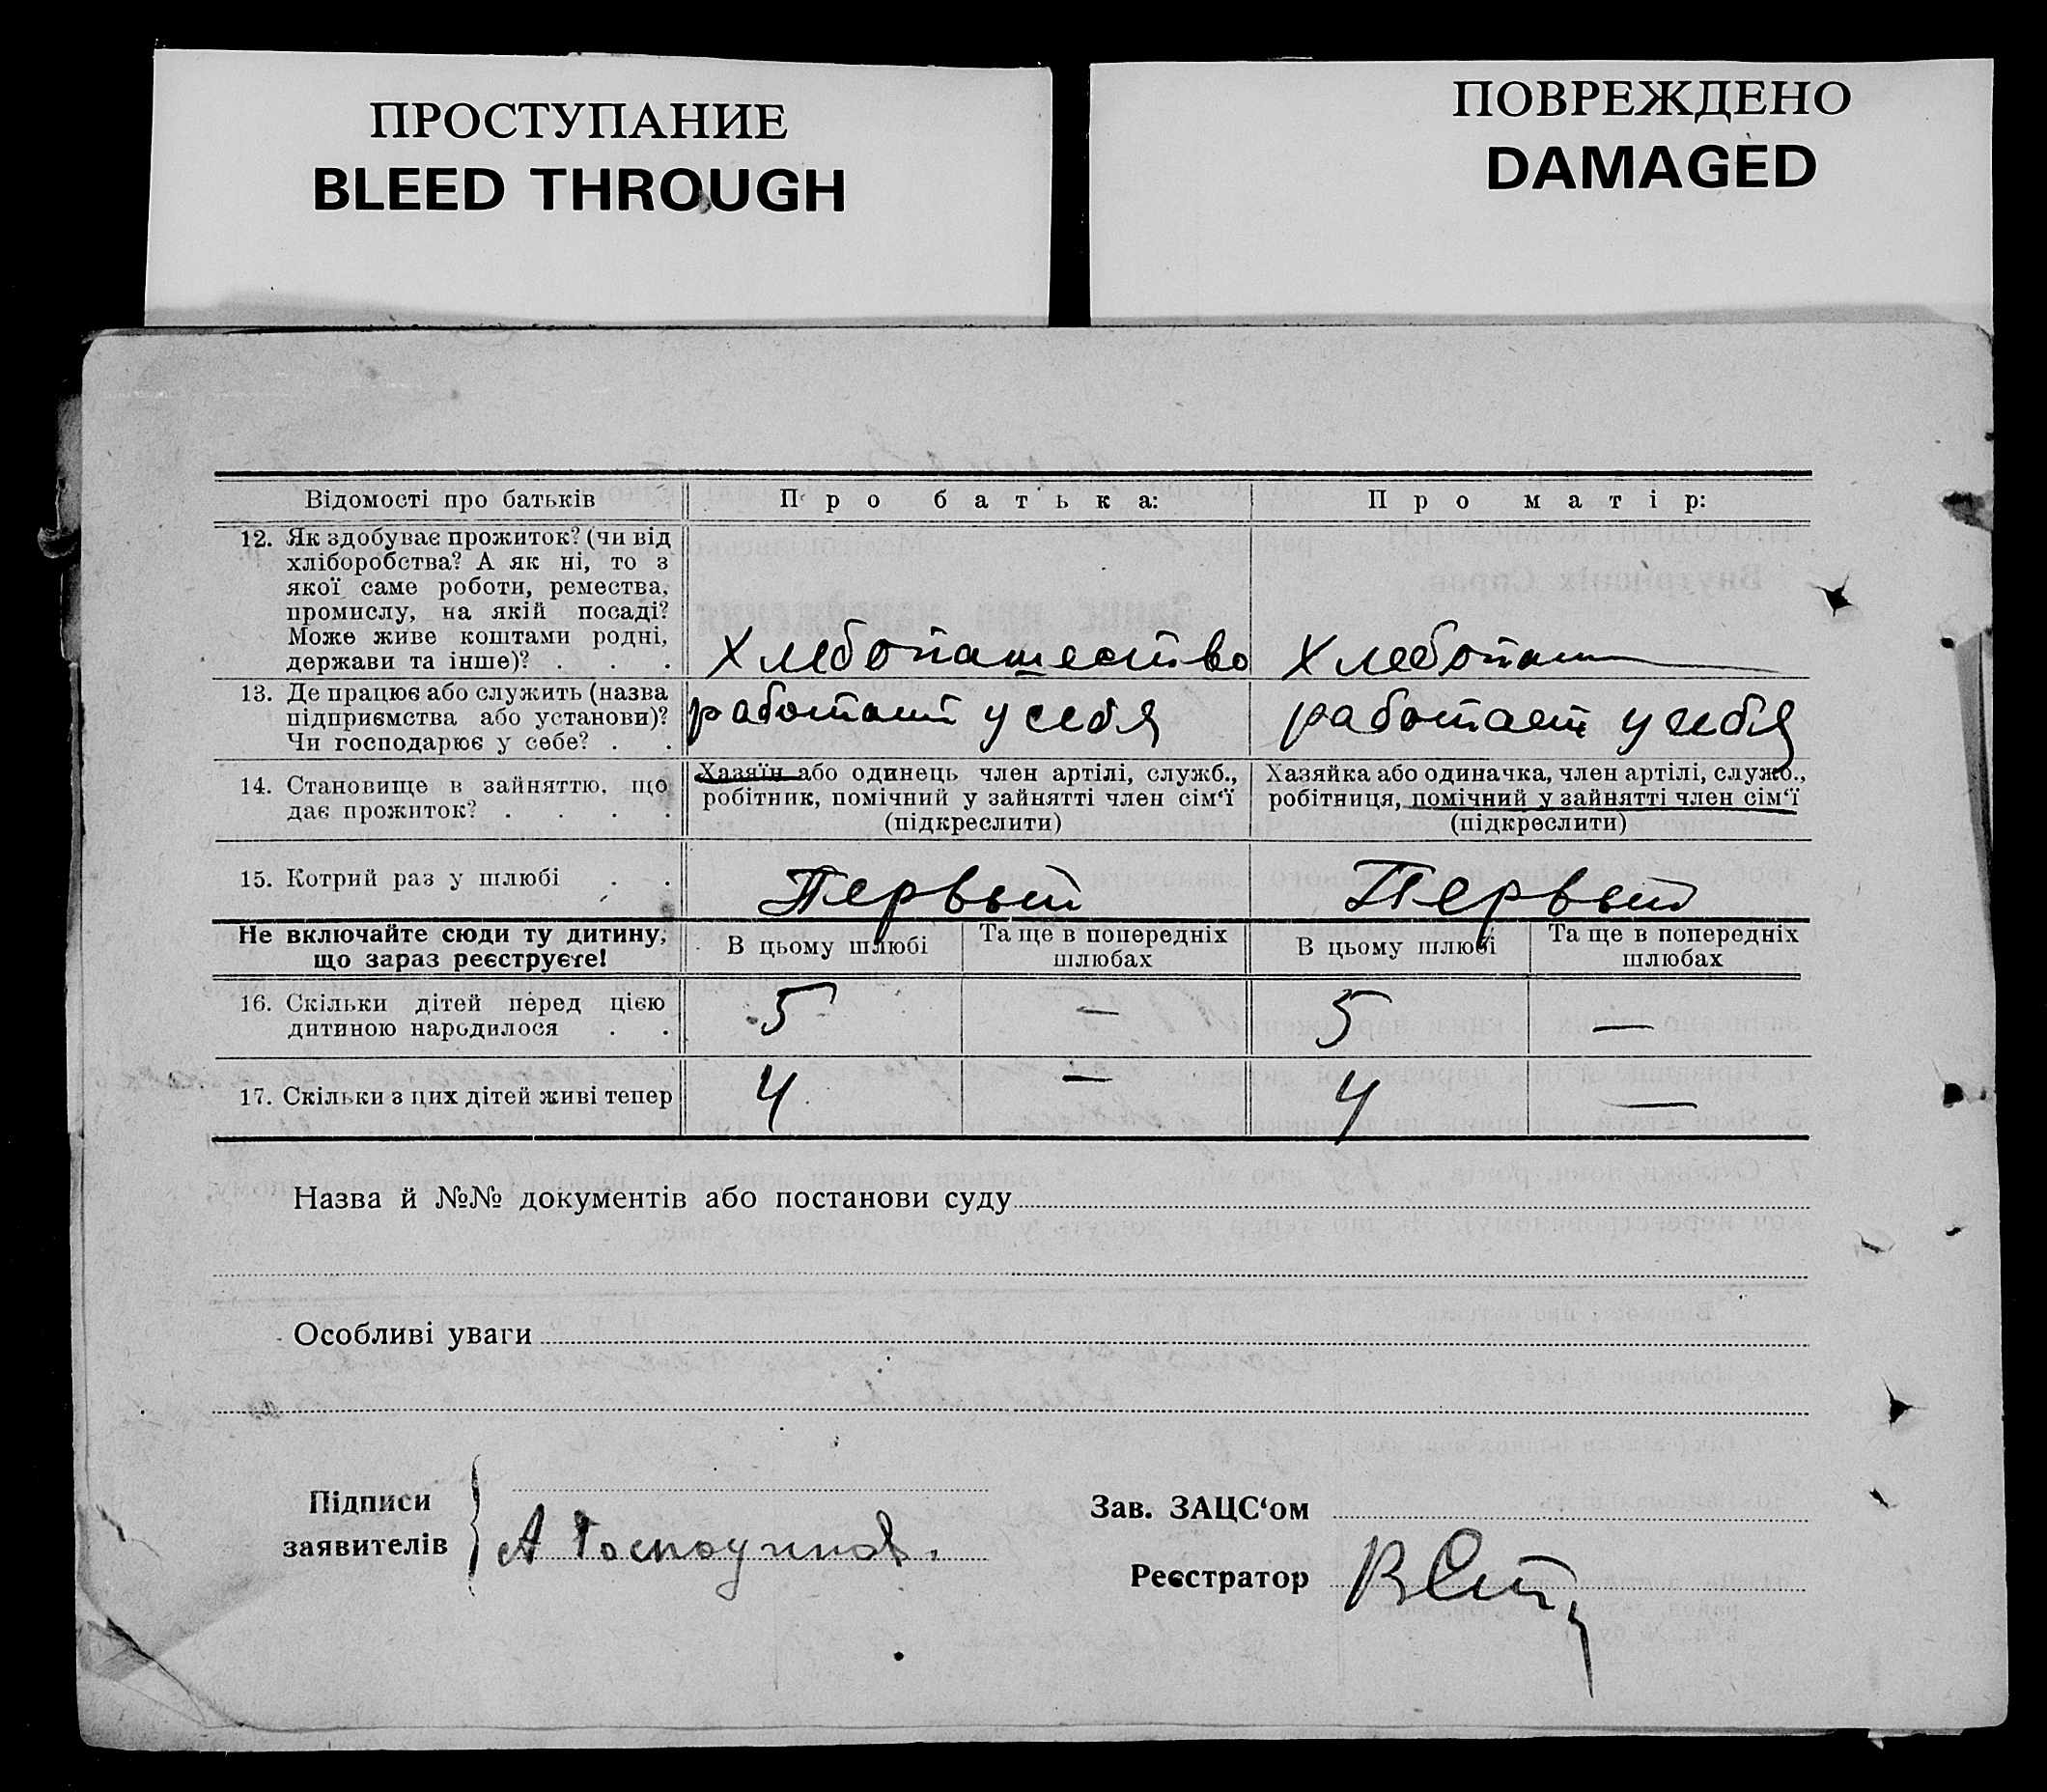 ПРОСТУПАНИЕ
BLEED THROUGH
ПОВРЕЖДЕНО
DAMAGED
Відомості про батьків
Про батька:
Про матір:
12. Як здобуває прожиток? (чи від
хліборобства? А як ні, то з
якої саме роботи, ремества,
промислу, на якій посаді?
Може живе коштами родні,
держави та інше)? . . .
Хлебопашество
Хлебопаш
13. Де працює або служить (назва
підприємства або установи)?
Чи господарює у себе? . .
работает у себя
работает у себя
14. Становище в зайняттю, що
дає прожиток? . . . .
Хазяїн або одинець член артілі, служб.,
робітник, помічний у зайнятті член сім‘ї
(підкреслити)
Хазяйка або одиначка, член артілі, служб.,
робітниця, помічний у зайнятті член сім‘ї
(підкреслити)
15. Котрий раз у шлюбі . .
Первый
Первый
Не включайте сюди ту дитину,
що зараз реєструєте!
В цьому шлюбі
Та ще в попередніх
шлюбах
В цьому шлюбі
Та ще в попередніх
шлюбах
16. Скільки дітей перед цією
дитиною народилося . .
5
—
5
—
17. Скільки з цих дітей живі тепер
4
—
4
—
Назва й №№ документів або постанови суду
Особливі уваги
Підписи
заявителів
А Господинов.
Зав. ЗАЦС‘ом
Реєстратор